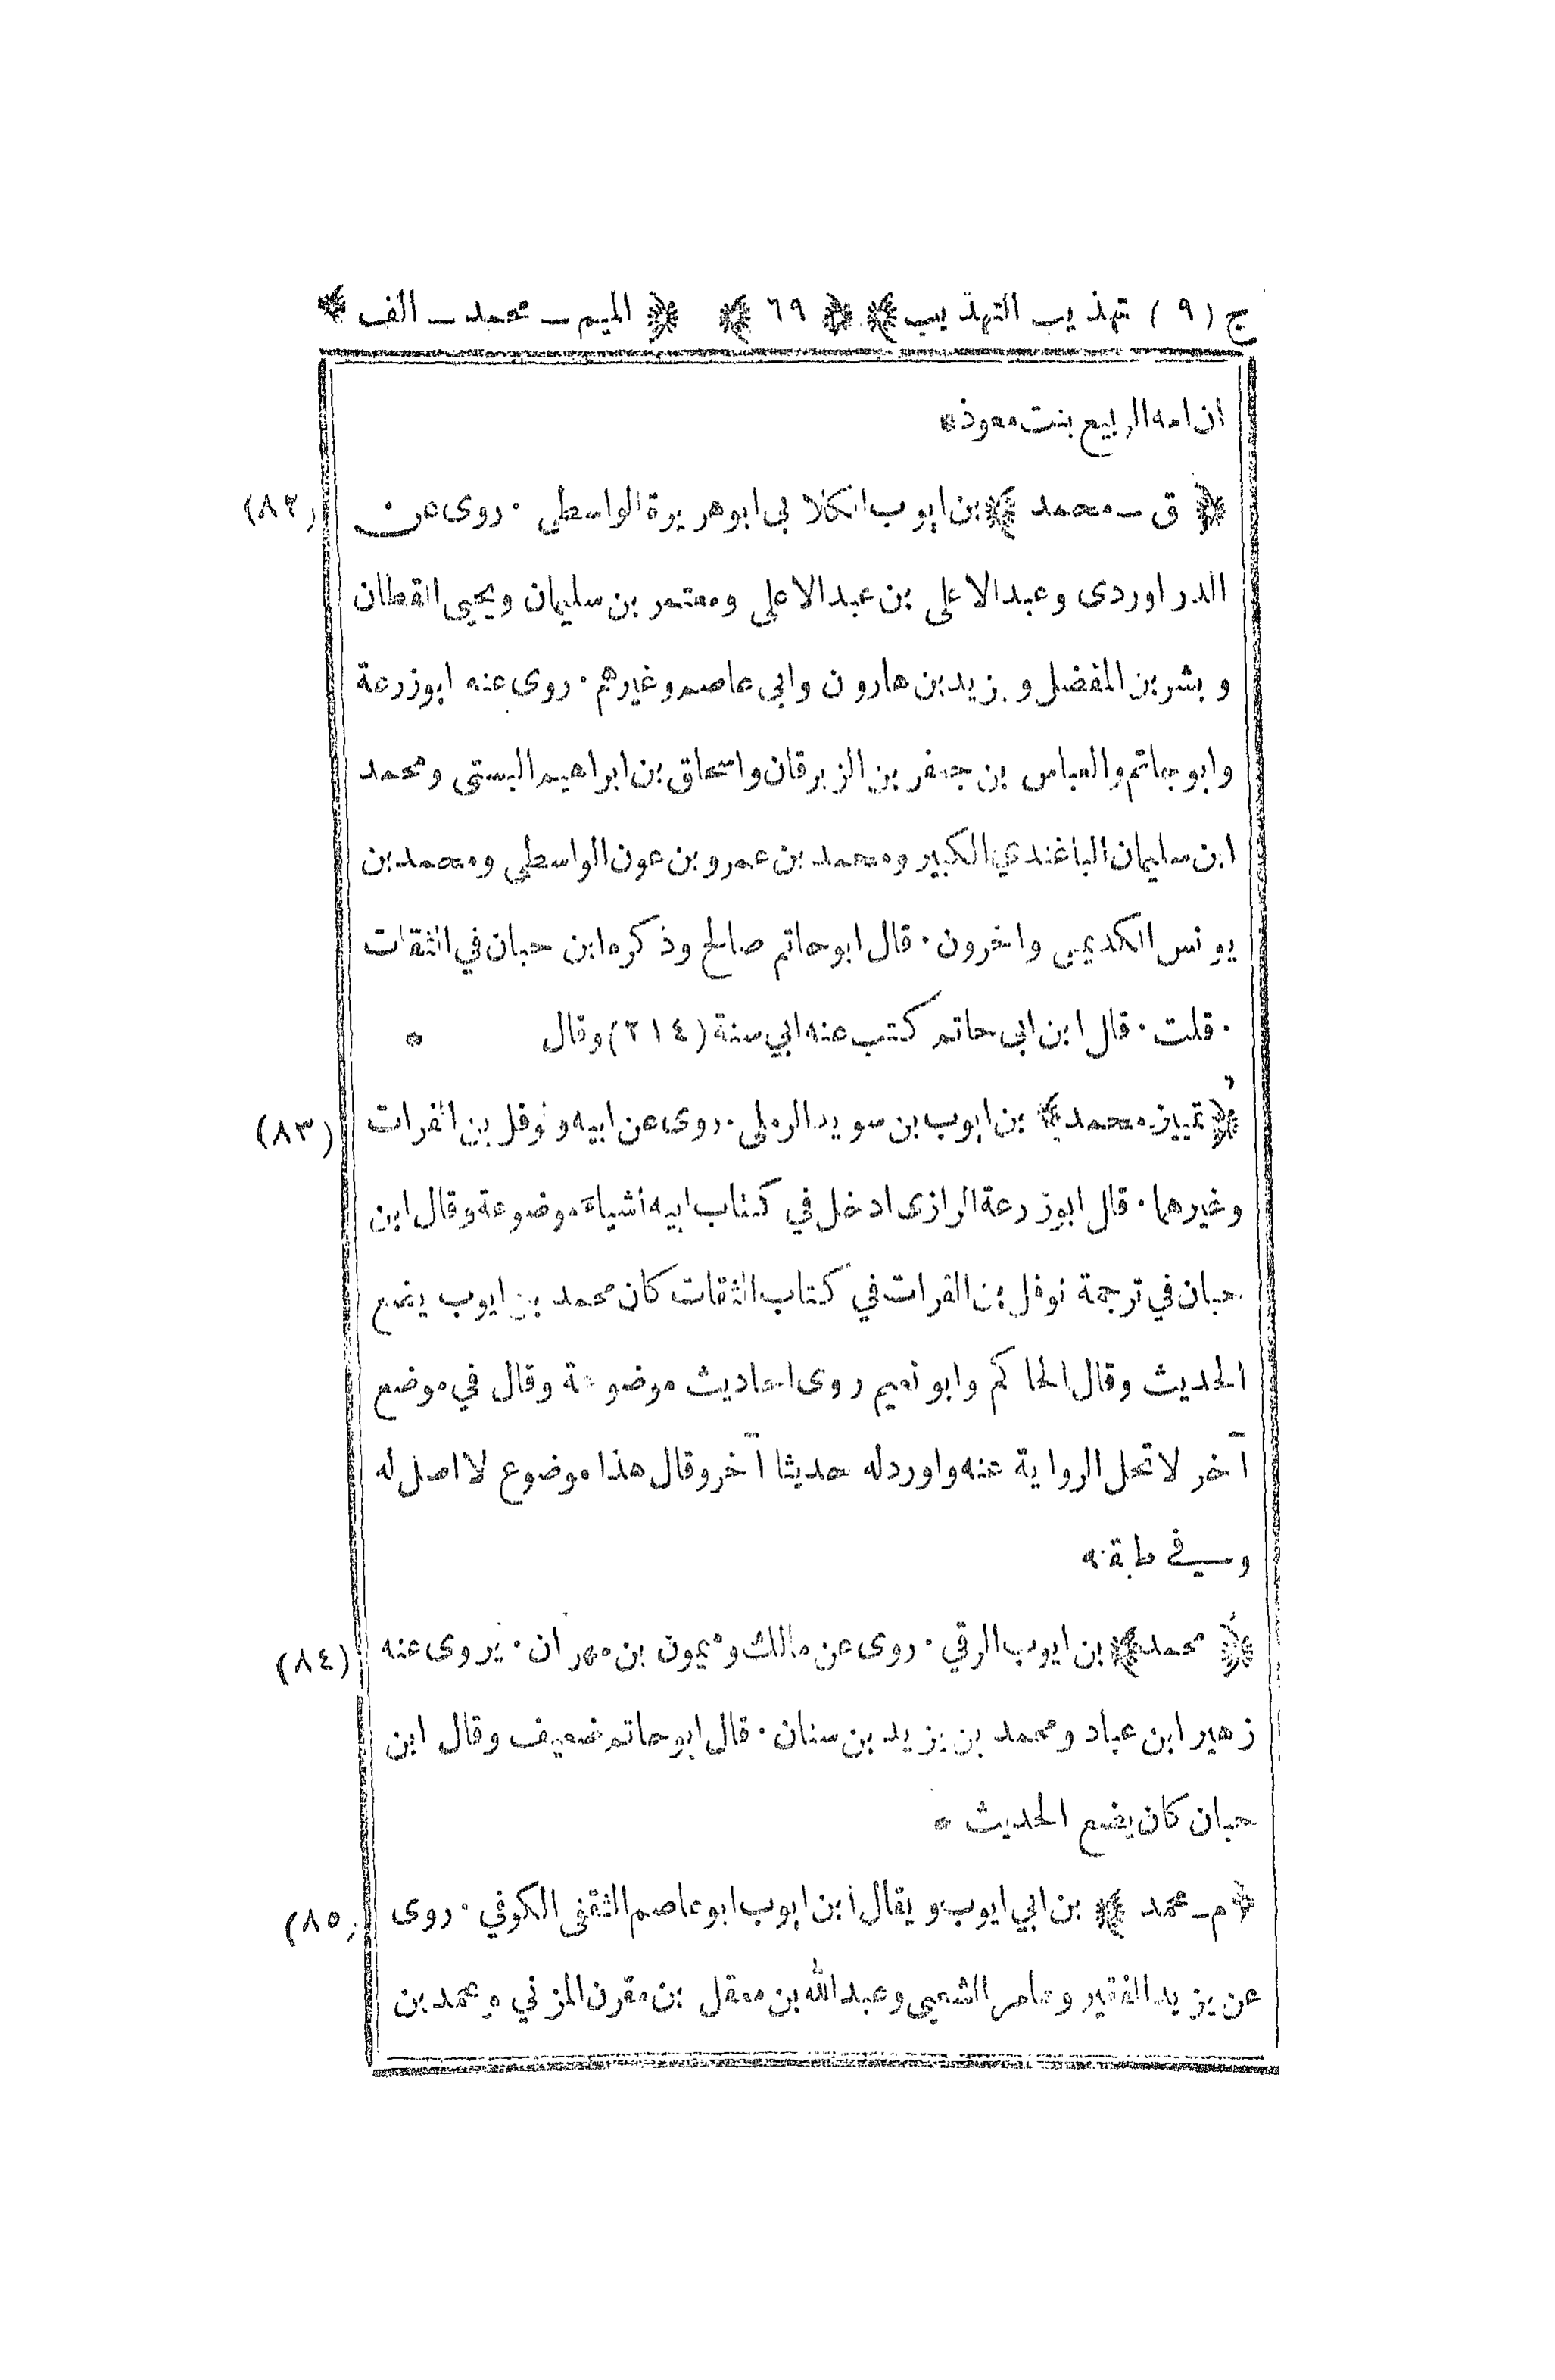 ج (٩) تهذيب التهذيب ﴿ ٦٩ ﴾ ﴿ الميم ـ محمد ـ الف ﴾
ان امه الربيع بنت معوذ*
(٨٢) ﴿ ق ـ محمد ﴾ بن ايوب الكلابي ابو هريرة الواسطي · روى عن
الدراوردى وعبد الاعلى بن عبد الاعلى ومعتمر بن سليمان ويحيى القطان
وبشر بن المفضل ويزيد بن هارون وابى عاصم وغيرهم · روى عنه ابو زرعة
وابو حاتم والعباس بن جعفر بن الزبرقان واسحاق بن ابراهيم البستى ومحمد
ابن سليمان الباغندي الكبير ومحمد بن عمرو بن عون الواسطى ومحمد بن
يونس الكديمى واخرون · قال ابو حاتم صالح وذكره ابن حبان في الثقات
· قلت · قال ابن ابى حاتم كتب عنه ابي سنة (٢١٤) وقال *
(٨٣) ﴿ تمييز محمد ﴾ بن ايوب بن سويد الرملى · روى عن ابيه ونوفل بن الفرات
وغيرهما · قال ابو زرعة الرازى ادخل في كتاب ابيه أشياء موضوعة وقال ابن
حبان في ترجمة نوفل بن الفرات في كتاب الثقات كان محمد بن ايوب يضع
الحديث وقال الحاكم وابو نعيم روى احاديث موضوعة وقال في موضع
آخر لا تحل الرواية عنه واورد له حديثا آخر وقال هذا موضوع لا اصل له
وسيفے طبقته
(٨٤) ﴿ محمد ﴾ بن ايوب الرقي · روى عن مالك وميمون بن مهران · يروى عنه
زهير ابن عباد ومحمد بن يزيد بن سنان · قال ابو حاتم ضعيف وقال ابن
حبان كان يضع الحديث *
(٨٥) ﴿ م ـ محمد ﴾ بن ابي ايوب ويقال ابن ايوب ابو عاصم الثقفى الكوفي · روى
عن يزيد الفقير وعامر الشعبى وعبد الله بن معقل بن مقرن المزني ومحمد بن